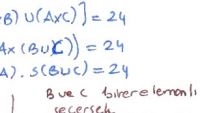 ·B) U(AxC)] = 24
Ax(BUC)) = 24
A). S(BUC) = 24
B ve C birer elemanlı
seçersek